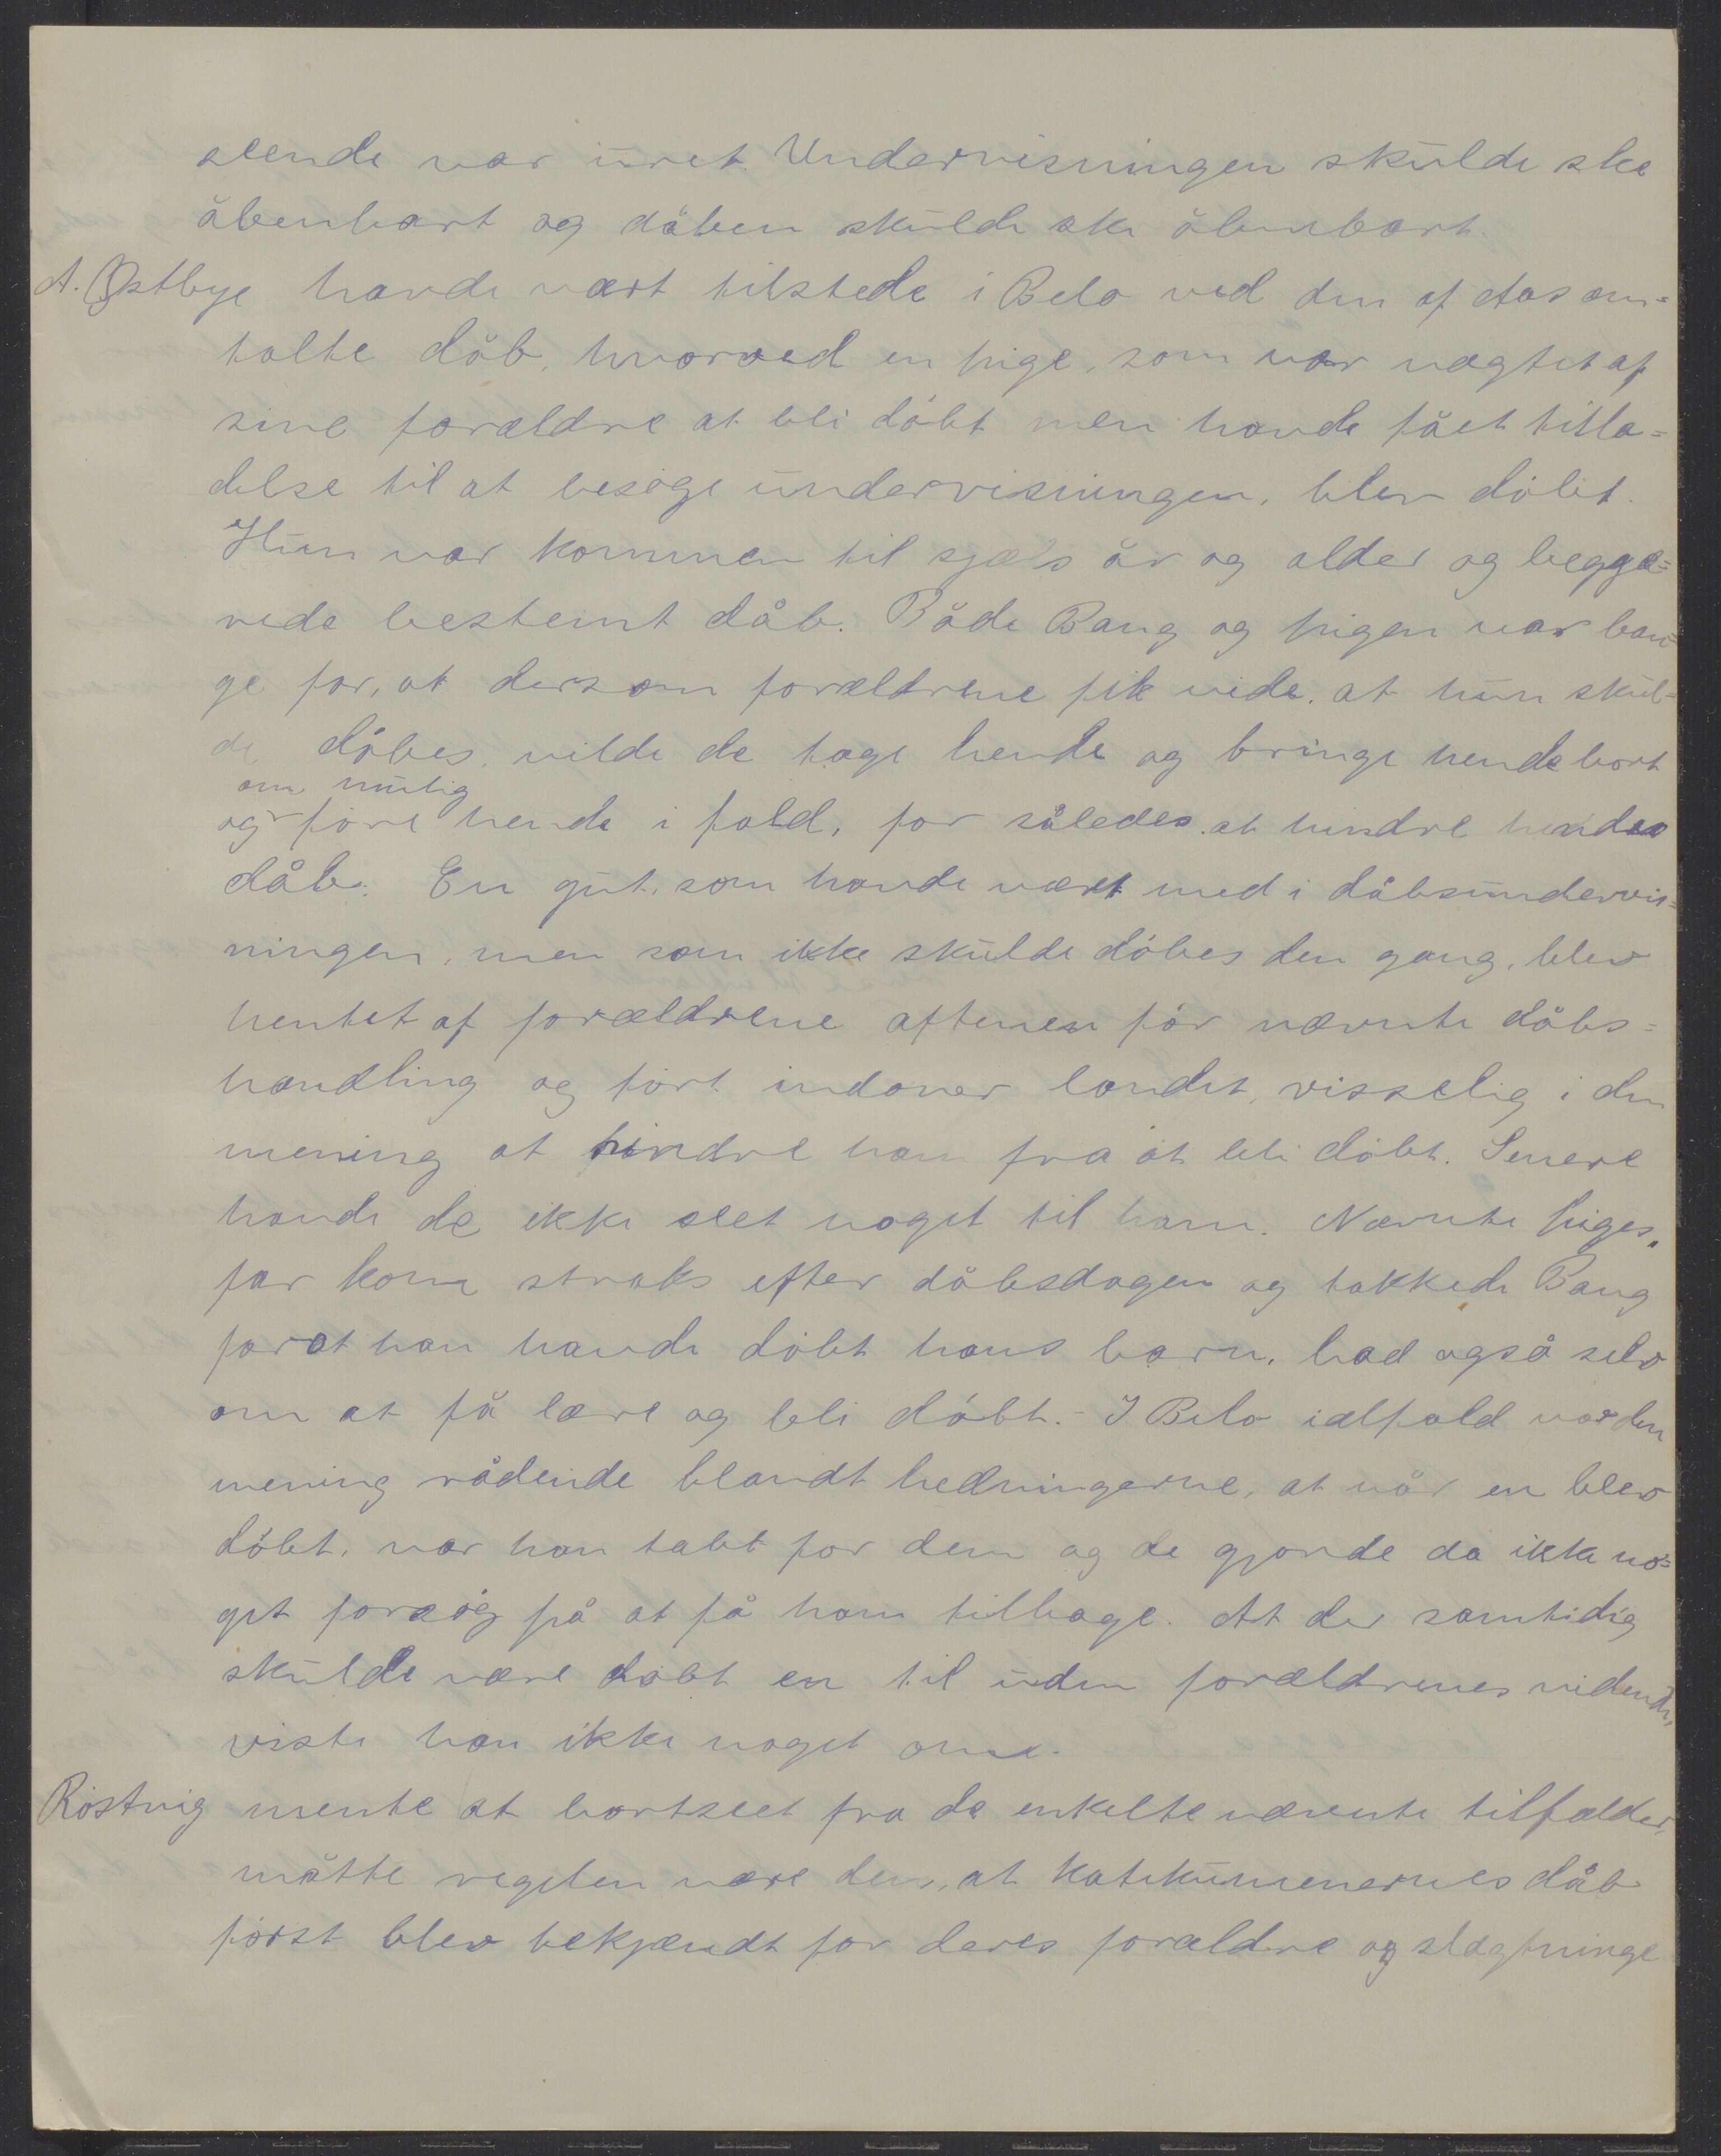 seende var uret. Undervisningen skulde ske
åbenbart og dåben skulde ske åbenbart.
A. Østbye havde vært tilstede i Belo ved den af Aas om=
talte dåb, hvorved en pige, som var nægtet af
sine forældre at bli döbt men havde fået tilla=
delse til at besöge undervisningen, blev döbt.
Hun var kommen til sjæls år og alder og begjæ=
rede bestemt dåb. Både Bang og pigen var ban=
ge for, at dersom forældrene fik vide, at hun skul=
de döbes, vilde de tage hende og bringe hende bort
om mulig
og före hende i fald, for således at hindre hendes
dåb. En gut, som havde vært med i dåbsundervis=
ningen, men som ikke skulde döbes den gang, blev
hentet af forældrene aftenen för nævnte dåbs=
handling og fört indover landet, visselig i den
mening at hindre ham fra at bli döbt. Senere
havde de ikke seet noget til ham. Nævnte piges
far kom straks efter dåbsdagen og takkede Bang
forat han havde döbt hans barn, bad også selv
om at få lære og bli döbt. - I Belo ialfald var den
mening rådende blandt hedningerne, at når en blev
döbt, var han tabt for dem og de gjorde da ikke no=
get forsög på at få ham tilbage. At der samtidig
skulde være döbt en til uden forældrenes vidende,
viste han ikke noget om.
Röstvig mente at bortseet fra de enkelte nævnte tilfælder,
måtte regelen være den, at katekumenernes dåb
först blev bekjændt for deres forældre og slægtninge